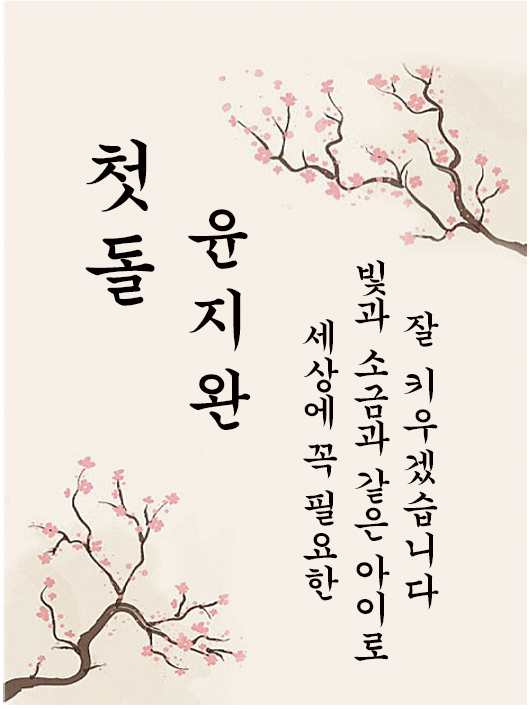 첫돌
윤지완
세상에 꼭 필요한
빛과 소금과 같은 아이로
잘 키우겠습니다